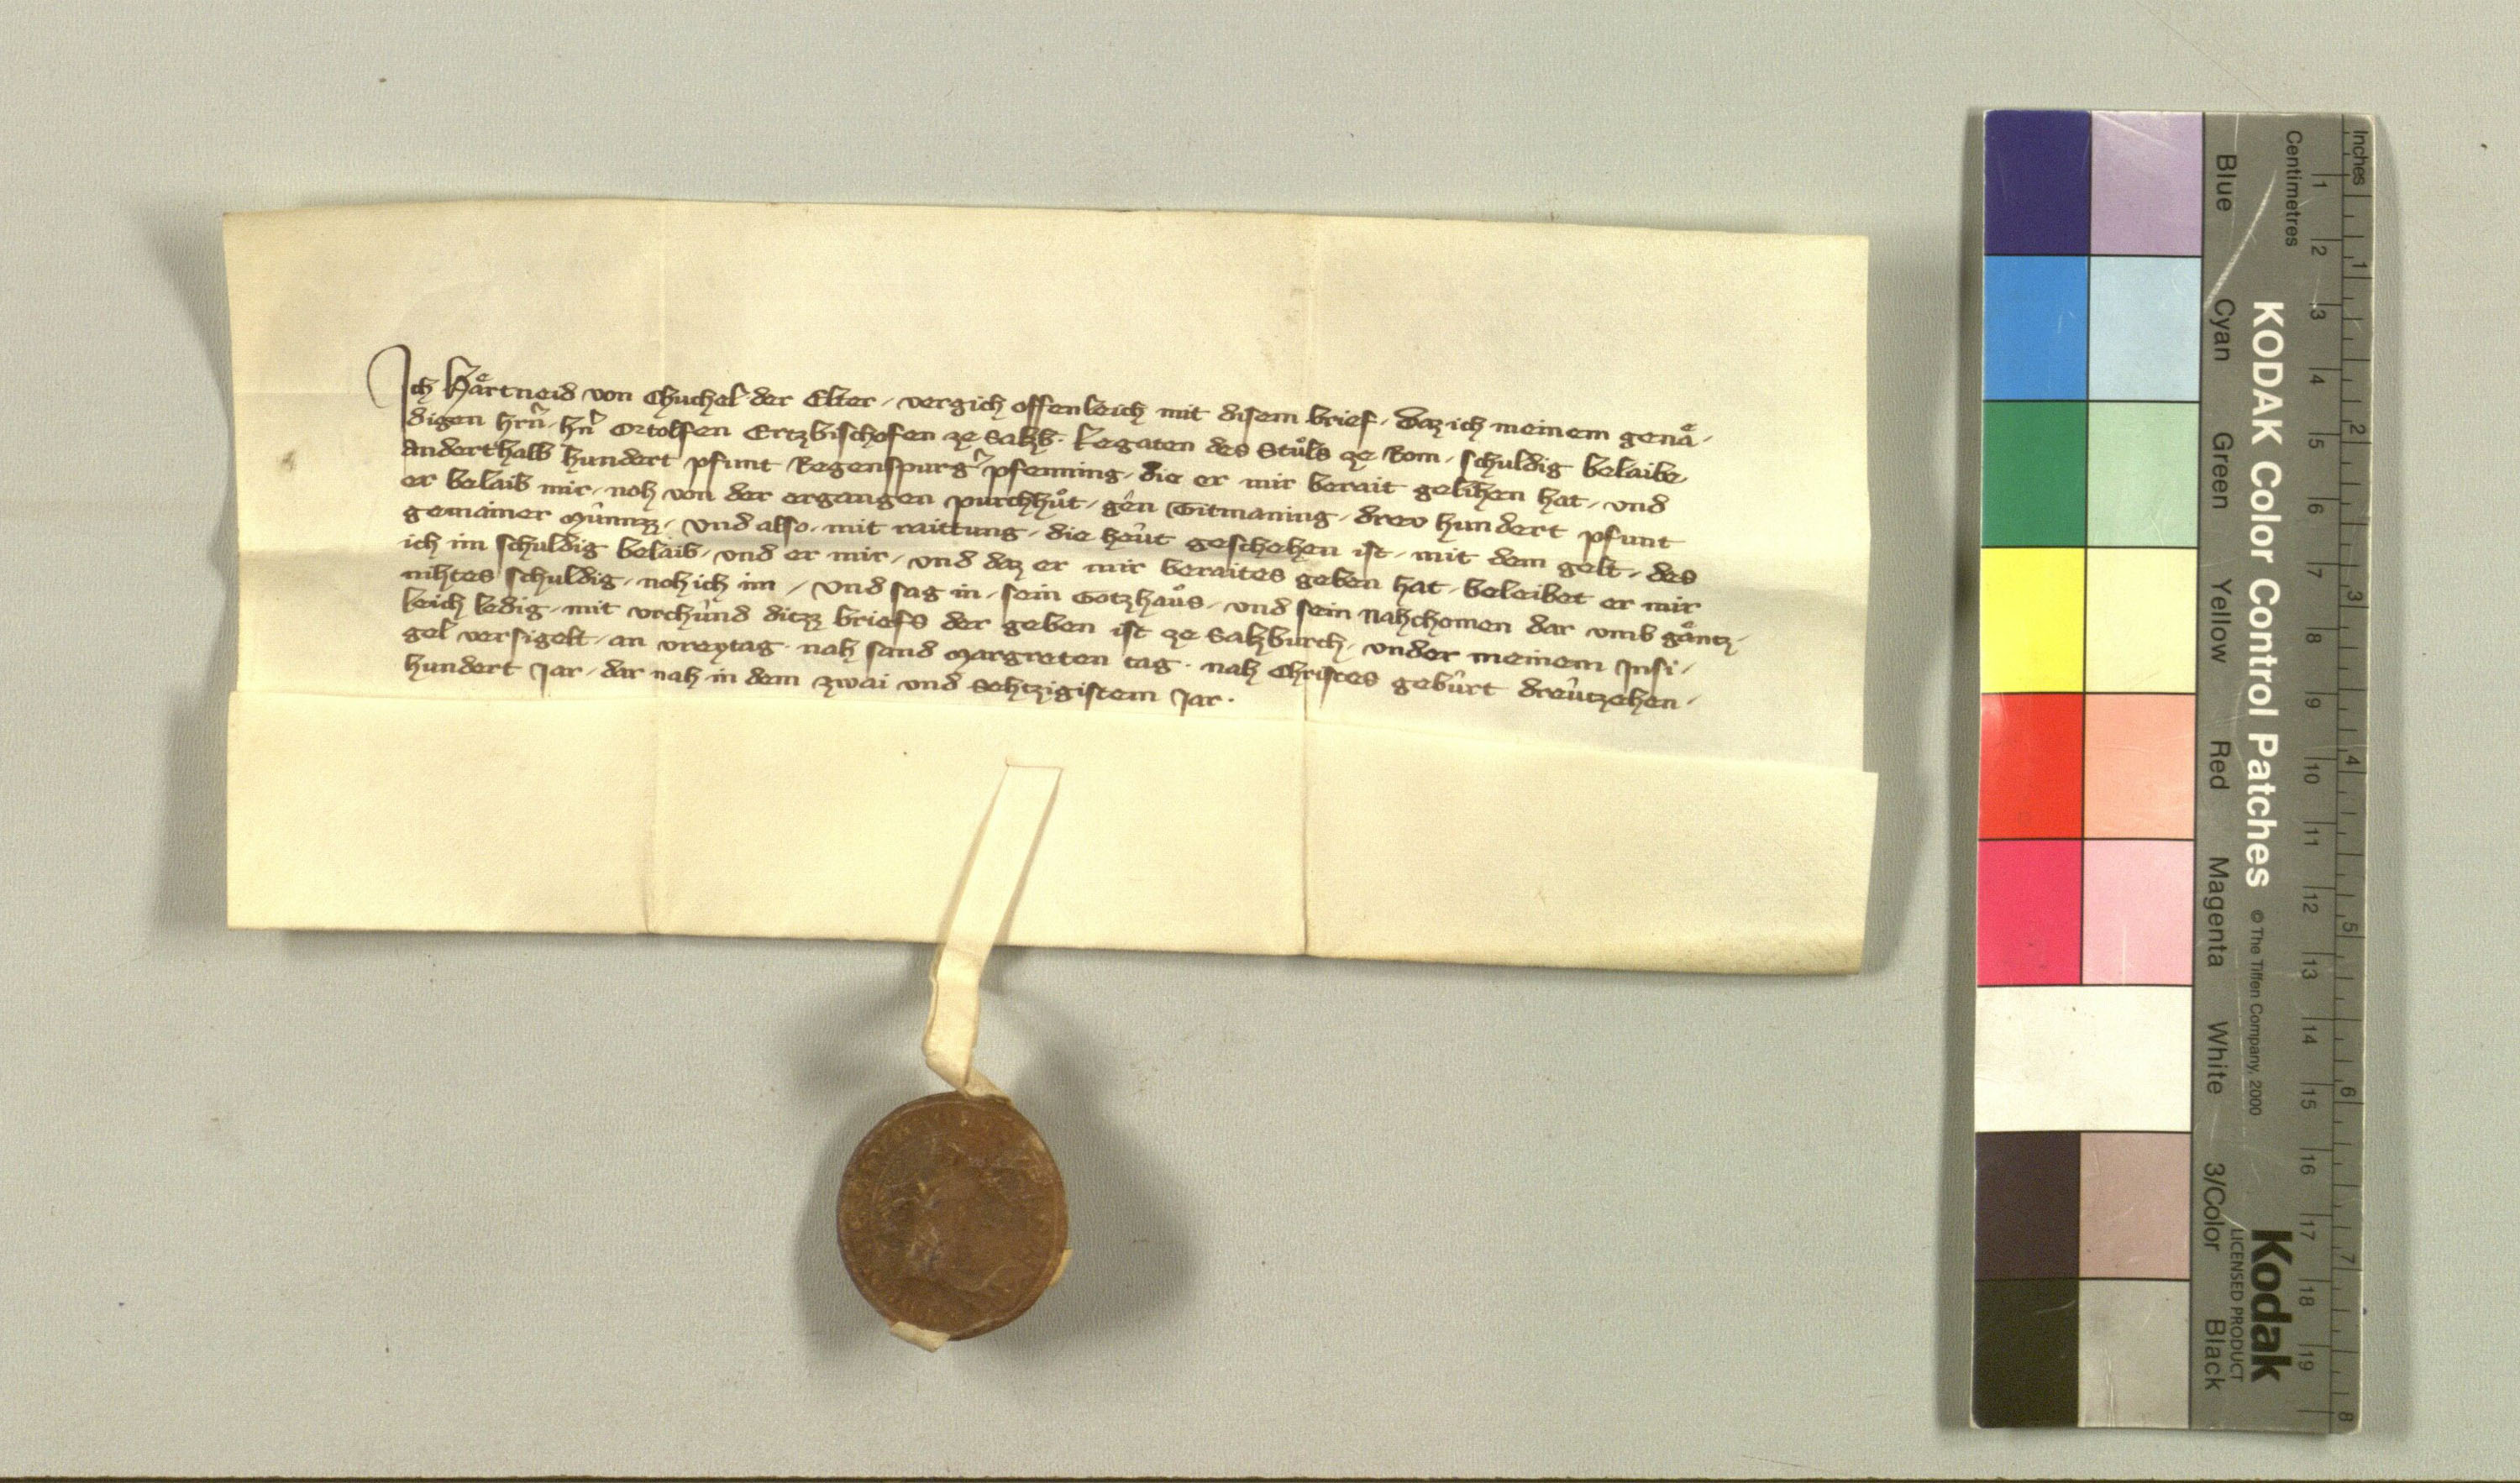 Ich Haͤrtneid von Chuchel der Elter, vergich offenleich mit disem brief, daz ich meinem genaͤ-
digen hrn̄, hn̄ Ortolfen Ertzbischofen ze Salzb. Legaten des Stuͦls ze Rom, schuldig belaibe,
anderthalb hundert pfunt Regenspurg̉ pfenning, die er mir berait gelihen hat, und
er belaib mir, noh von der ergangen purchhuͦt, gên Titmaning, drev hundert pfunt
gemainer mûnnzz, und also, mit raittung, die heût geschehen ist, mit dem gelt, des
ich im schuldig belaib, und er mir, und daz er mir beraites geben hat, beleibet er mir
nihtes schuldig, noh ich im, und sag in, sein Gotzhaus, und sein Nahchomen dar umb gaͤntz-
leich ledig, mit vrchûnd ditzz briefs der geben ist ze Salzburch, under meinem Insi-
gel versigelt, an vreytag, nah sand Margreten tag, nah Christes gebûrt dreûtzehen-
hundert Jar, dar nah in dem zwai und Sehtzigistem Jar.
Inches
Centimetres
1 2 3 4 5 6 7 8
1 2 3 4 5 6 7 8 9 10 11 12 13 14 15 16 17 18 19
KODAK Color Control Patches © The Tiffen Company, 2000
Kodak
LICENSED PRODUCT
Blue Cyan Green Yellow Red Magenta White 3/Color Black